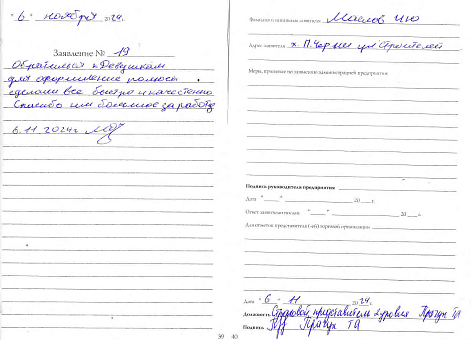 "6" ноября 2024.
Заявление № 19
Обратился к Девушкам
для оформление полюса
сделали все быстро и качественно
Спасибо им большое за работу
6.11.2024г
39
Фамилия и инициалы заявителя Маслов
Адрес заявителя х П. Чернии ул Строителей
Меры, принятые по заявлению администрацией предприятия
Подпись руководителя предприятия
Дата "___" 20 г.
Ответ заявителю послан "___" 20 г.
Для отметок представителя (-ей) торговой организации
Дата "6" 11 2024.
Должность Страховой представитель 2 уровня
Подпись
40